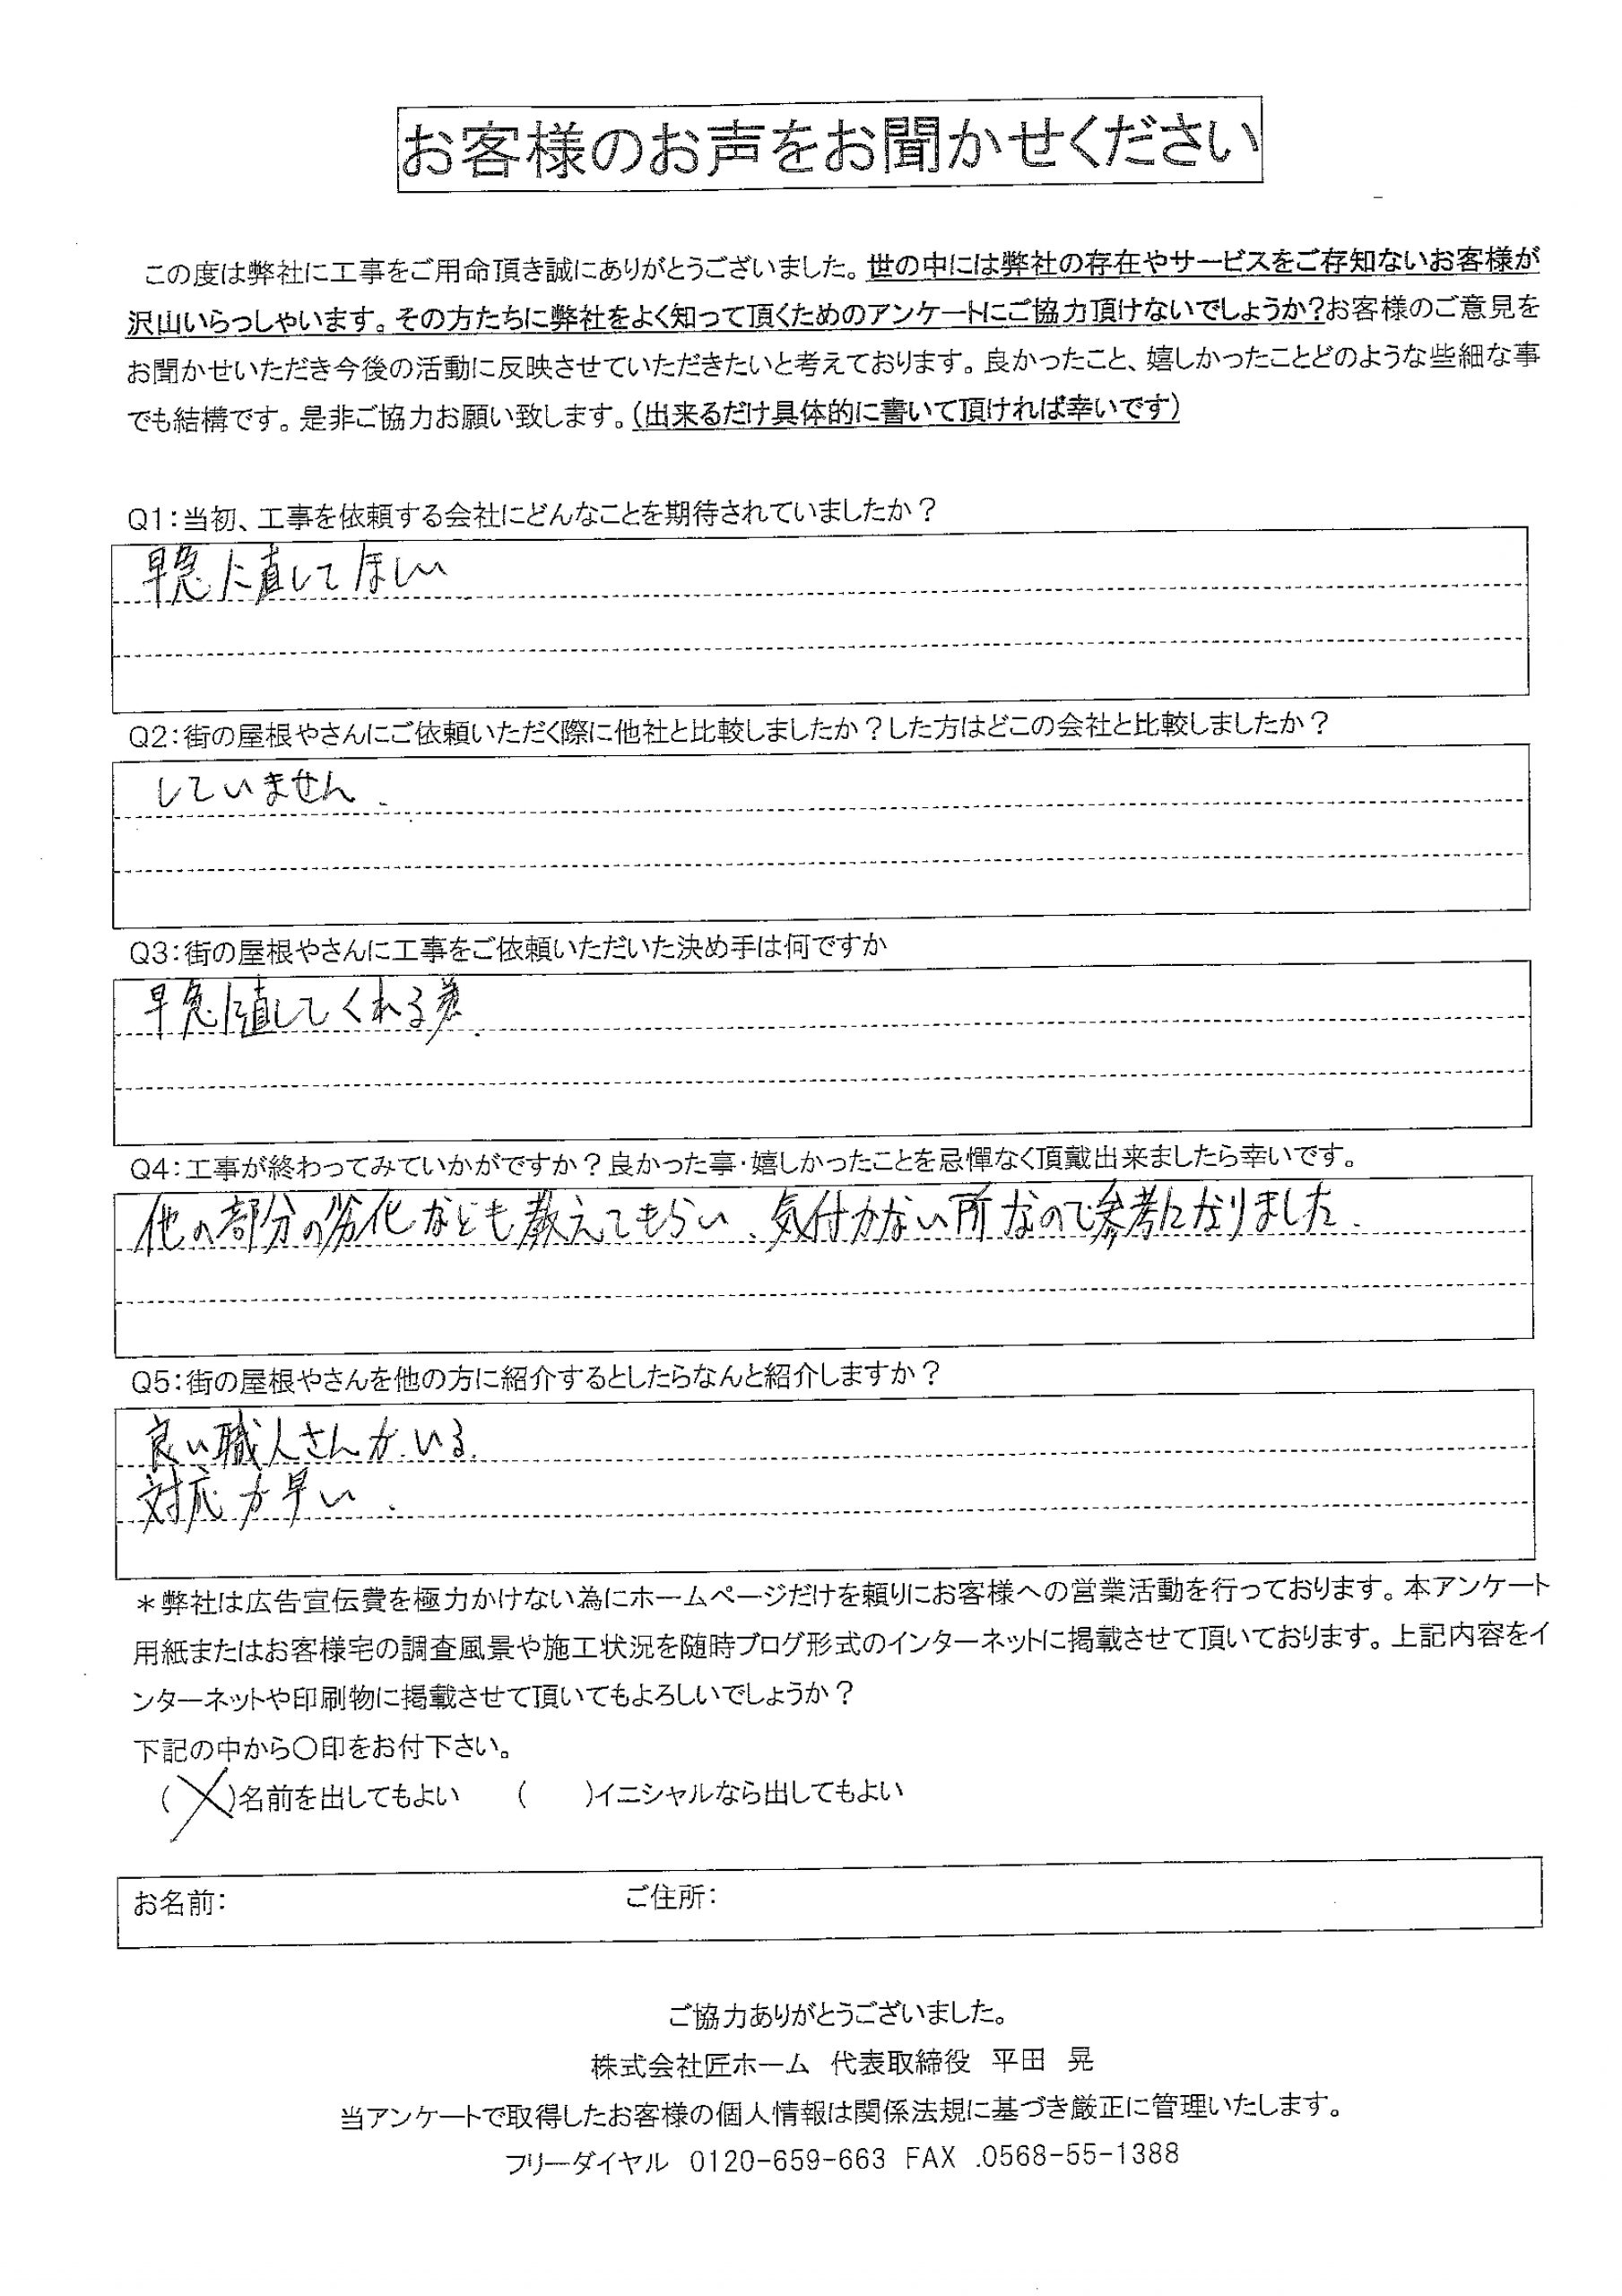 お客様のお声をお聞かせください
この度は弊社に工事をご用命頂き誠にありがとうございました。世の中には弊社の存在やサービスをご存知ないお客様が
沢山いらっしゃいます。その方たちに弊社をよく知って頂くためのアンケートにご協力頂けないでしょうか?お客様のご意見を
お聞かせいただき今後の活動に反映させていただきたいと考えております。良かったこと、嬉しかったことどのような些細な事
でも結構です。是非ご協力お願い致します。(出来るだけ具体的に書いて頂ければ幸いです)
Q1:当初、工事を依頼する会社にどんなことを期待されていましたか?
早急に直してほしい
Q2:街の屋根やさんにご依頼いただく際に他社と比較しましたか?した方はどこの会社と比較しましたか?
していません.
Q3:街の屋根やさんに工事をご依頼いただいた決め手は何ですか
早急に直してくれる
Q4:工事が終わってみていかがですか?良かった事・嬉しかったことを忌憚なく頂戴出来ましたら幸いです。
他の部分の劣化なども教えてもらい、気付かない所なので参考になりました.
Q5:街の屋根やさんを他の方に紹介するとしたらなんと紹介しますか?
良い職人さんがいる.
対応が早い.
*弊社は広告宣伝費を極力かけない為にホームページだけを頼りにお客様への営業活動を行っております。本アンケート
用紙またはお客様宅の調査風景や施工状況を随時ブログ形式のインターネットに掲載させて頂いております。上記内容をイ
ンターネットや印刷物に掲載させて頂いてもよろしいでしょうか?
下記の中から〇印をお付下さい。
(╳)名前を出してもよい (　)イニシャルなら出してもよい
お名前: ご住所:
ご協力ありがとうございました。
株式会社匠ホーム 代表取締役 平田 晃
当アンケートで取得したお客様の個人情報は関係法規に基づき厳正に管理いたします。
フリーダイヤル 0120-659-663 FAX .0568-55-1388